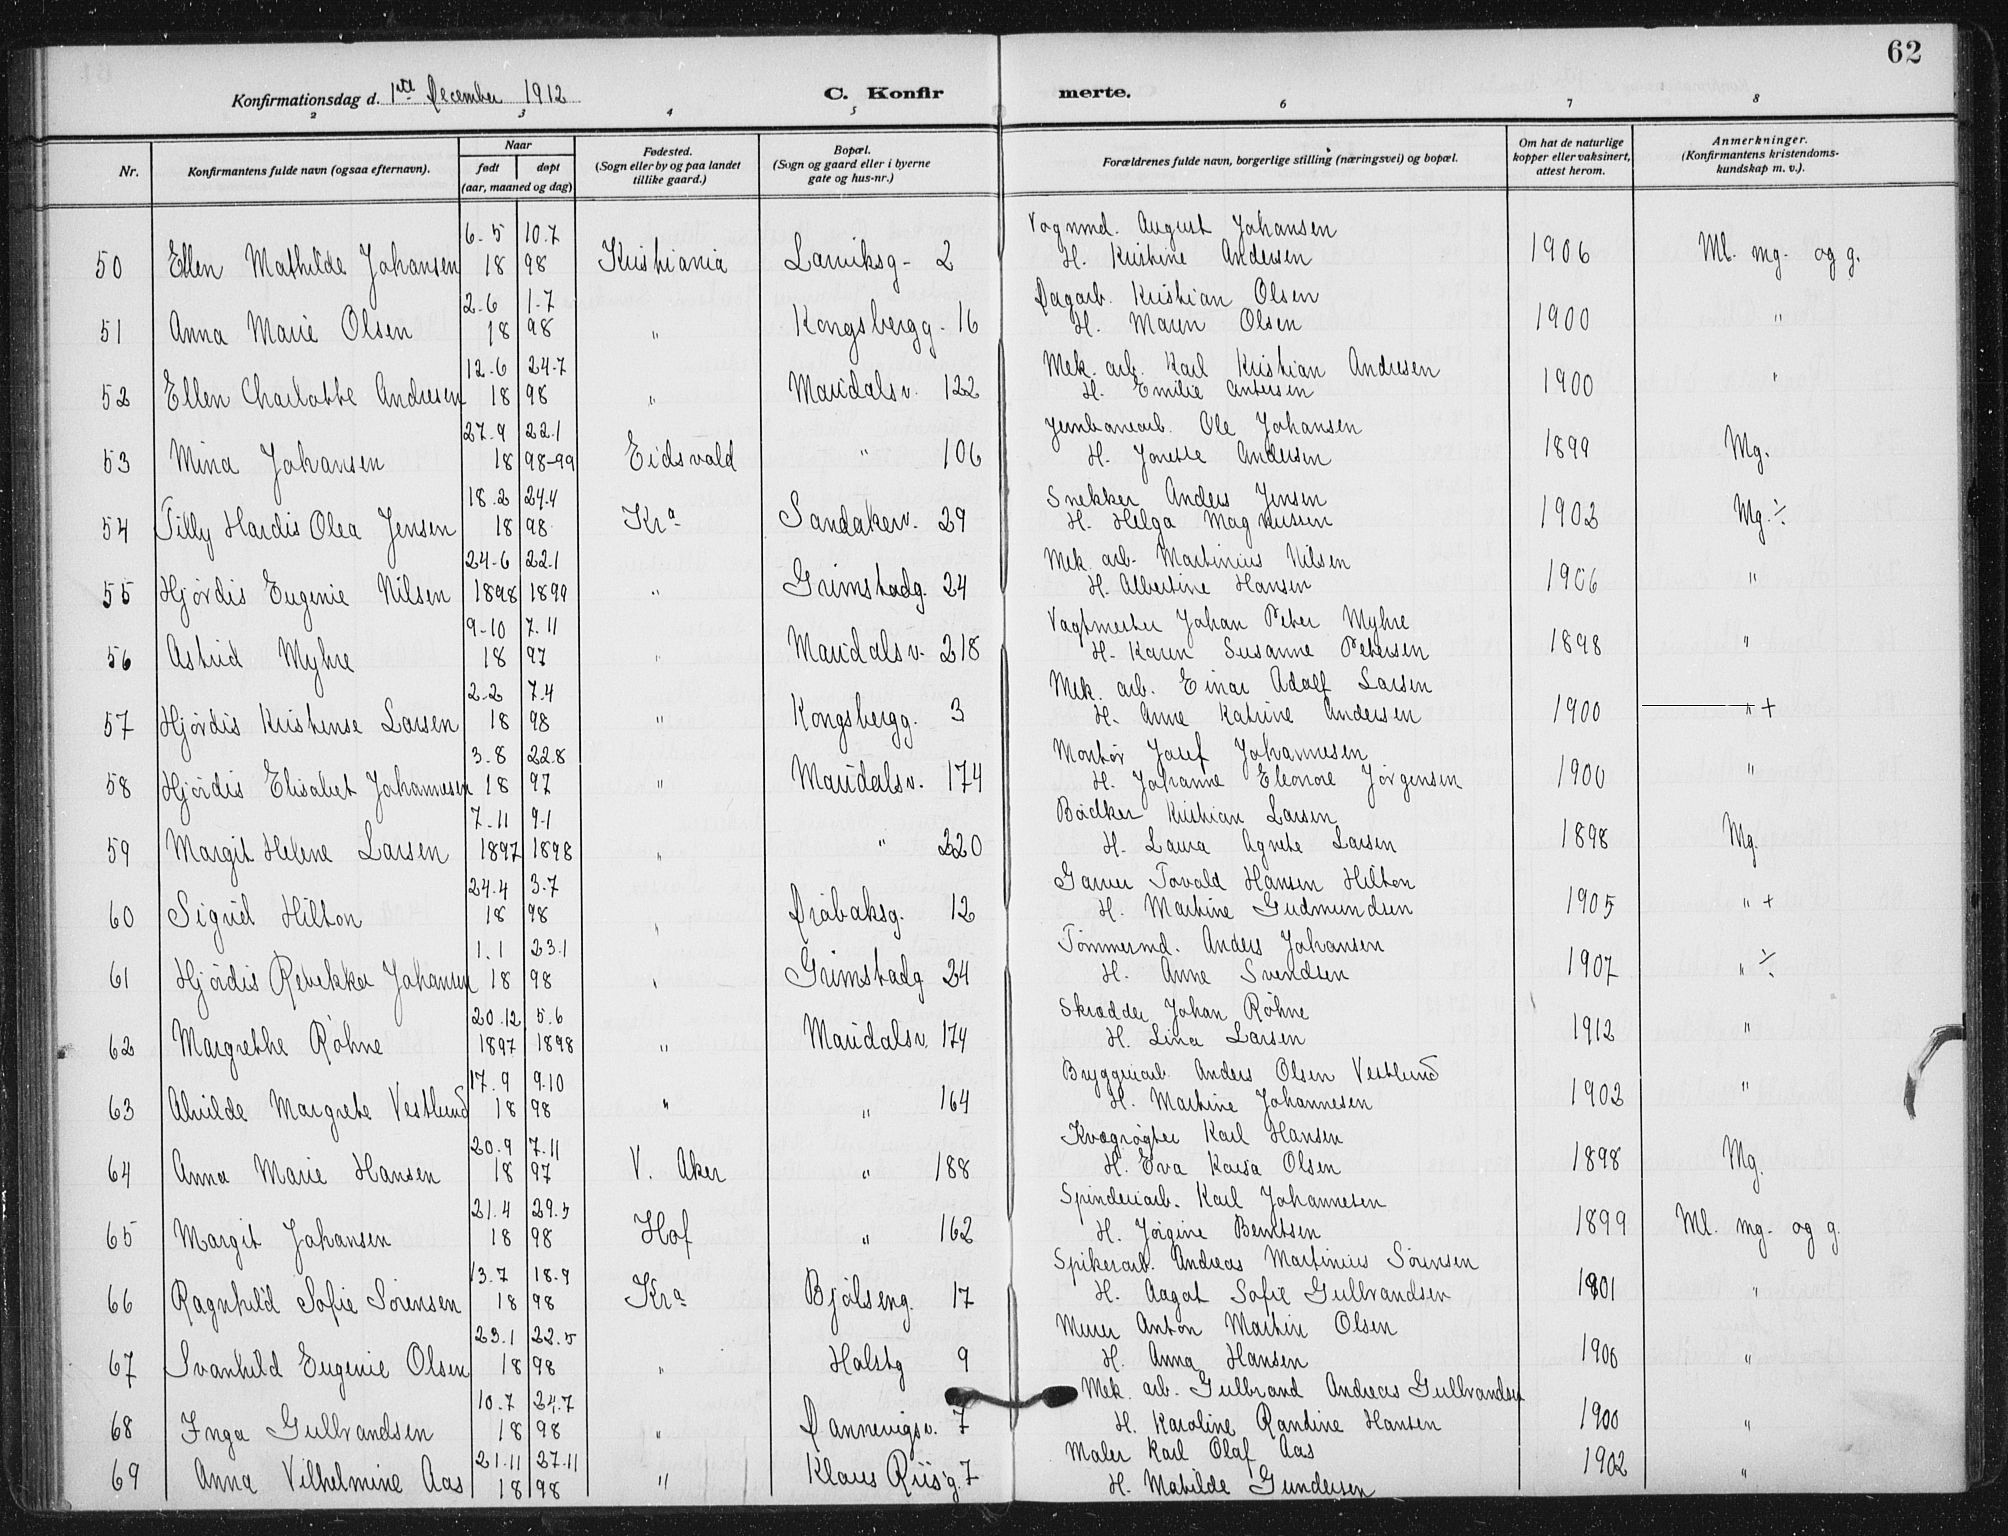 62
Konfirmationsdag d. 1ste December 1912 C. Konfirmerte.
2 3 4 5 6 7 8
Nr. Konfirmantens fulde navn (ogsaa efternavn). Naar født døpt (aar, maaned og dag) Fødested. (Sogn eller by og paa landet tillike gaard.) Bopæl. (Sogn og gaard eller i byerne gate og hus-nr.) Forældrenes fulde navn, borgerlige stilling (næringsvei) og bopæl. Om hat de naturlige kopper eller vaksinert, attest herom. Anmerkninger. (Konfirmantens kristendoms-kundskap m. v.).
6-5 10.7 Vognmd. August Johansen
50 Ellen Mathilde Johansen 18 98 Kristiania Larviksg- 2 H. Kristine Andersen 1906 Ml. mg. og g.
2.6 1.7 Dagarb. Kristian Olsen
51 Anna Marie Olsen 18 98 " Kongsbergg. 16 H. Maren Olsen 1900 "
12.6 24.7 Mek. arb. Karl Kristian Andresen
52 Ellen Charlotte Andresen 18 98 " Maridalsv. 122 H. Emilie Antersen 1900 "
27.9 22.1 Jernbanearb. Ole Johansen
53 Mina Johansen 18 98-99 Eidsvald " 106 H. Jonette Andersen 1899 Mg.
18.2 24.4 Snekker Anders Jensen
54 Tilly Hardis Olea Jensen 18 98 Kra Sandakerv. 29 H. Helga Magnussen 1902 Mg. ÷
24-6 22.1 Mek. arb. Martinius Nilsen
55 Hjørdis Eugenie Nilsen 1898 1899 " Grimstadg. 24 H. Albertine Hansen 1906 "
9-10 7.11 Vagtmester Johan Peter Myhre
56 Astrid Myhre 18 97 " Maridalsv. 218 H. Karen Susanne Petersen 1898 "
2-2 7.4 Mek. arb. Einar Adolf Larsen
57 Hjørdis Kristense Larsen 18 98 " Kongsbergg. 3 H. Anne Katrine Andersen 1900 " +
3.8 22.8 Montør Josef Johannesen
58 Hjørdis Elisabet Johannesen 18 97 " Maridalsv. 174 H. Johanne Eleonore Jørgensen 1900 "
7.11 9.1 Bødker Kristian Larsen
59 Margit Helene Larsen 1897 1898 " " 220 H. Laura Agnete Larsen 1898 Mg.
24.4 3.7 Garver Torvald Hansen Hilton
60 Sigrid Hilton 18 98 " Drøbaksg. 12 H. Martine Gudmundsen 1905 " +
1.1 23.1 Tømmermd. Anders Johansen
61 Hjørdis Rebekka Johansen 18 98 " Grimstadg 24 H. Anne Svendsen 1907 " ÷
20.12 5.6 Skrædder Johan Røhne
62 Margrethe Røhne 1897 1898 " Maridalsv. 174 H. Lina Larsen 1912 "
17.9 9.10 Bryggeriarb. Anders Olsen Vestlund
63 Alvilde Margrete Vestlund 18 98 " " 164 H. Martine Johannesen 1902 "
20.9 7.11 Kvægrøgter Karl Hansen
64 Anna Marie Hansen 18 97 V. Aker " 188 H. Eva Kaisa Olsen 1898 Mg.
21.4 29.5 Spinderiarb. Karl Johannesen
65 Margit Johansen 18 98 Hof " 162 H. Jørgine Berntsen 1899 Ml. mg. og g.
13.7 18.9 Spikerarb. Andreas Martinius Sørensen
66 Ragnhild Sofie Sørensen 18 98 Kra Bjølseng. 17 H. Aagot Sofie Gulbrandsen 1901 "
23.1 22.5 Murer Anton Martin Olsen
67 Svanhild Eugenie Olsen 18 98 " Holstg 9 H. Anna Hansen 1900 "
10.7 24.7 Mek. arb. Gulbrand Andreas Gulbrandsen
68 Inga Gulbrandsen 18 98 " Dannevigsv. 7 H. Karoline Randine Hansen 1900 "
21.11 27.11 Maler Karl Olaf Aas
69 Anna Vilhelmine Aas 18 98 " Klaus Riis'g. 7 H. Matilde Gundersen 1902 "